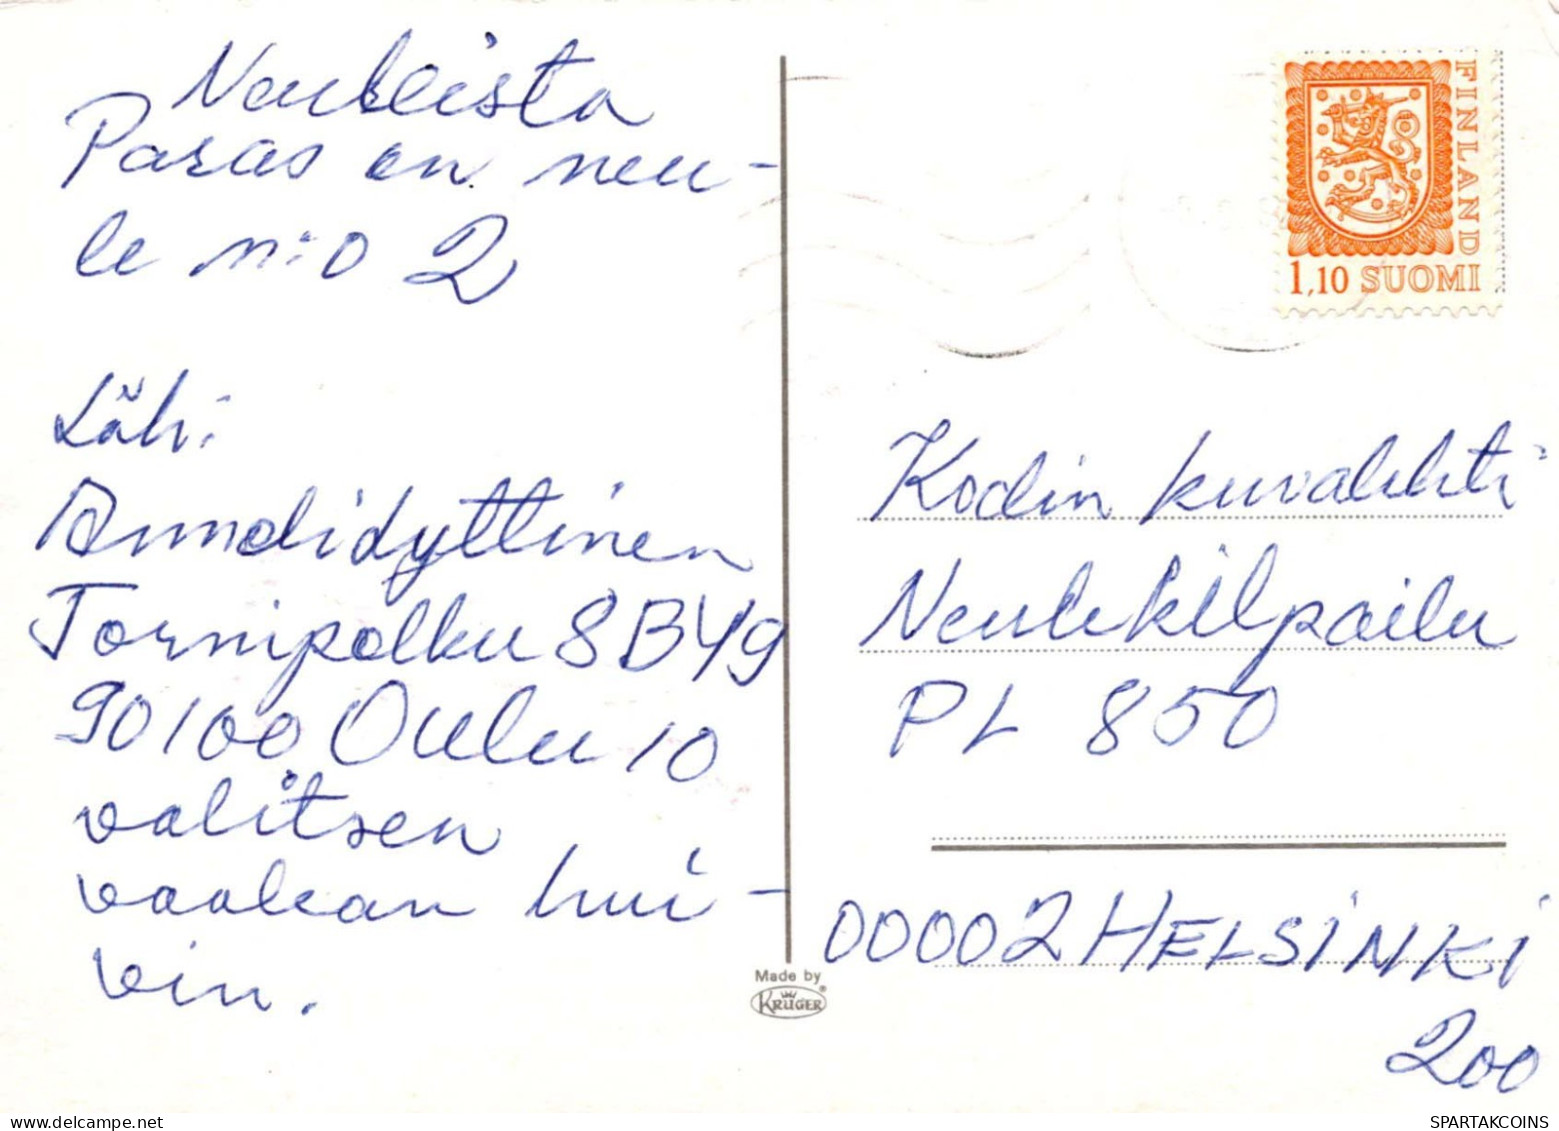 Neuleista
Paras on neu-
le n:o 2
Läh:
Tornipolku 8 B 49
90100 Oulu 10
valitsen
vaalean hui-
vin.
FINLAND
1,10 SUOMI
Kodin kuvalehti
Neulekilpailu
PL 850
00002 HELSINKI
200
Made by
KRÜGER
SPARTAKCOINS